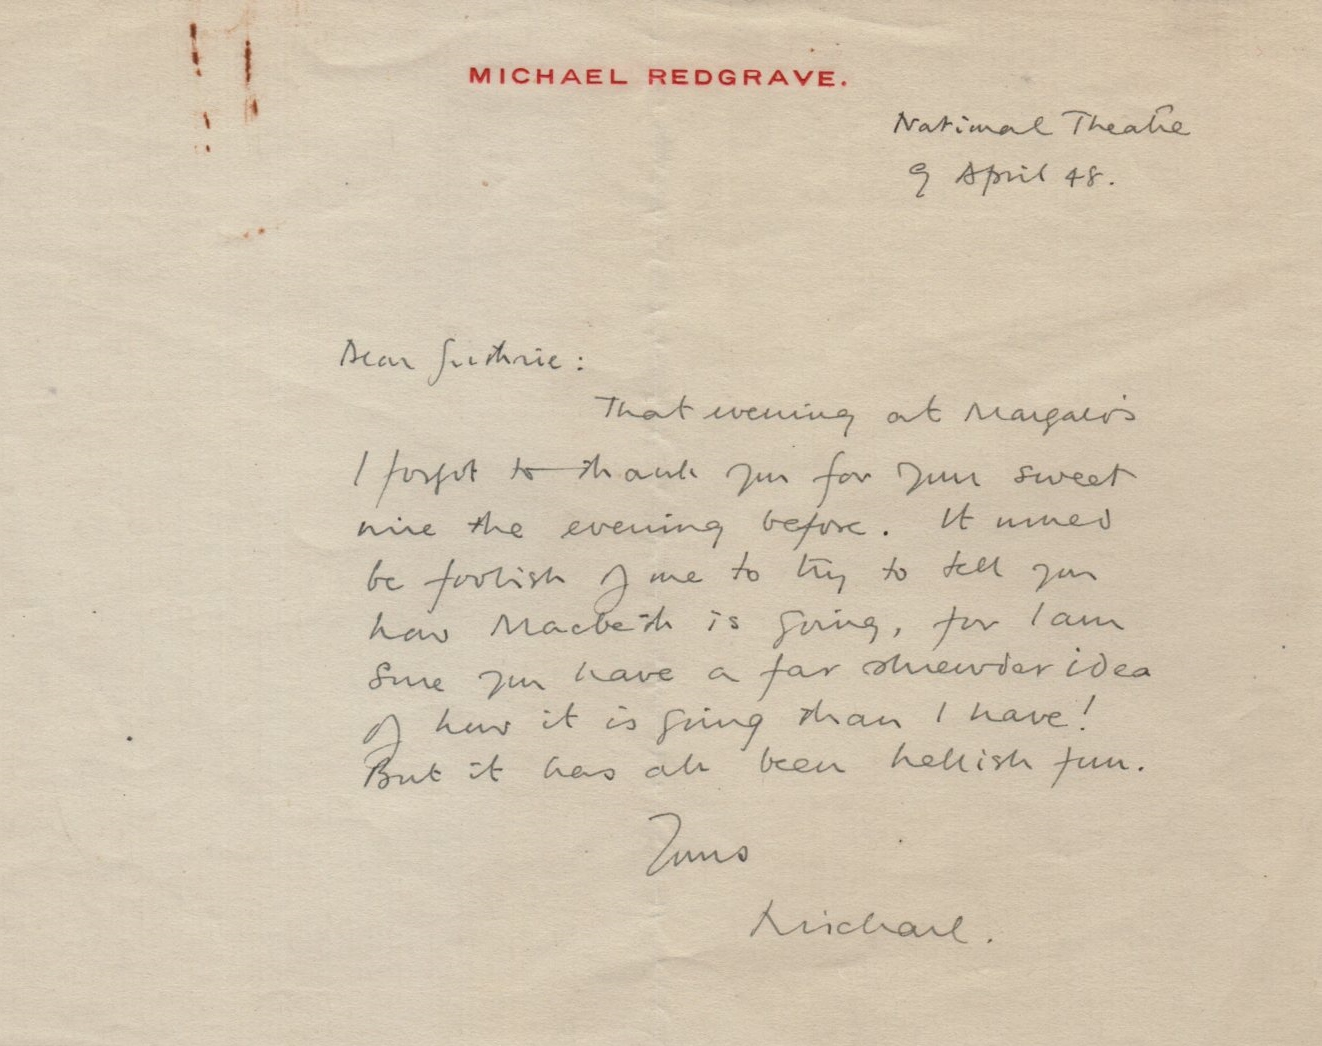 MICHAEL REDGRAVE.
National Theatre
9 April 48.
Dear Guthrie:
That evening at Margalo's
I forgot to thank you for your sweet
wire the evening before. It would
be foolish of me to try to tell you
how Macbeth is going, for I am
sure you have a far shrewder idea
of how it is going than I have!
But it has all been hellish fun.
Yours
Michael.